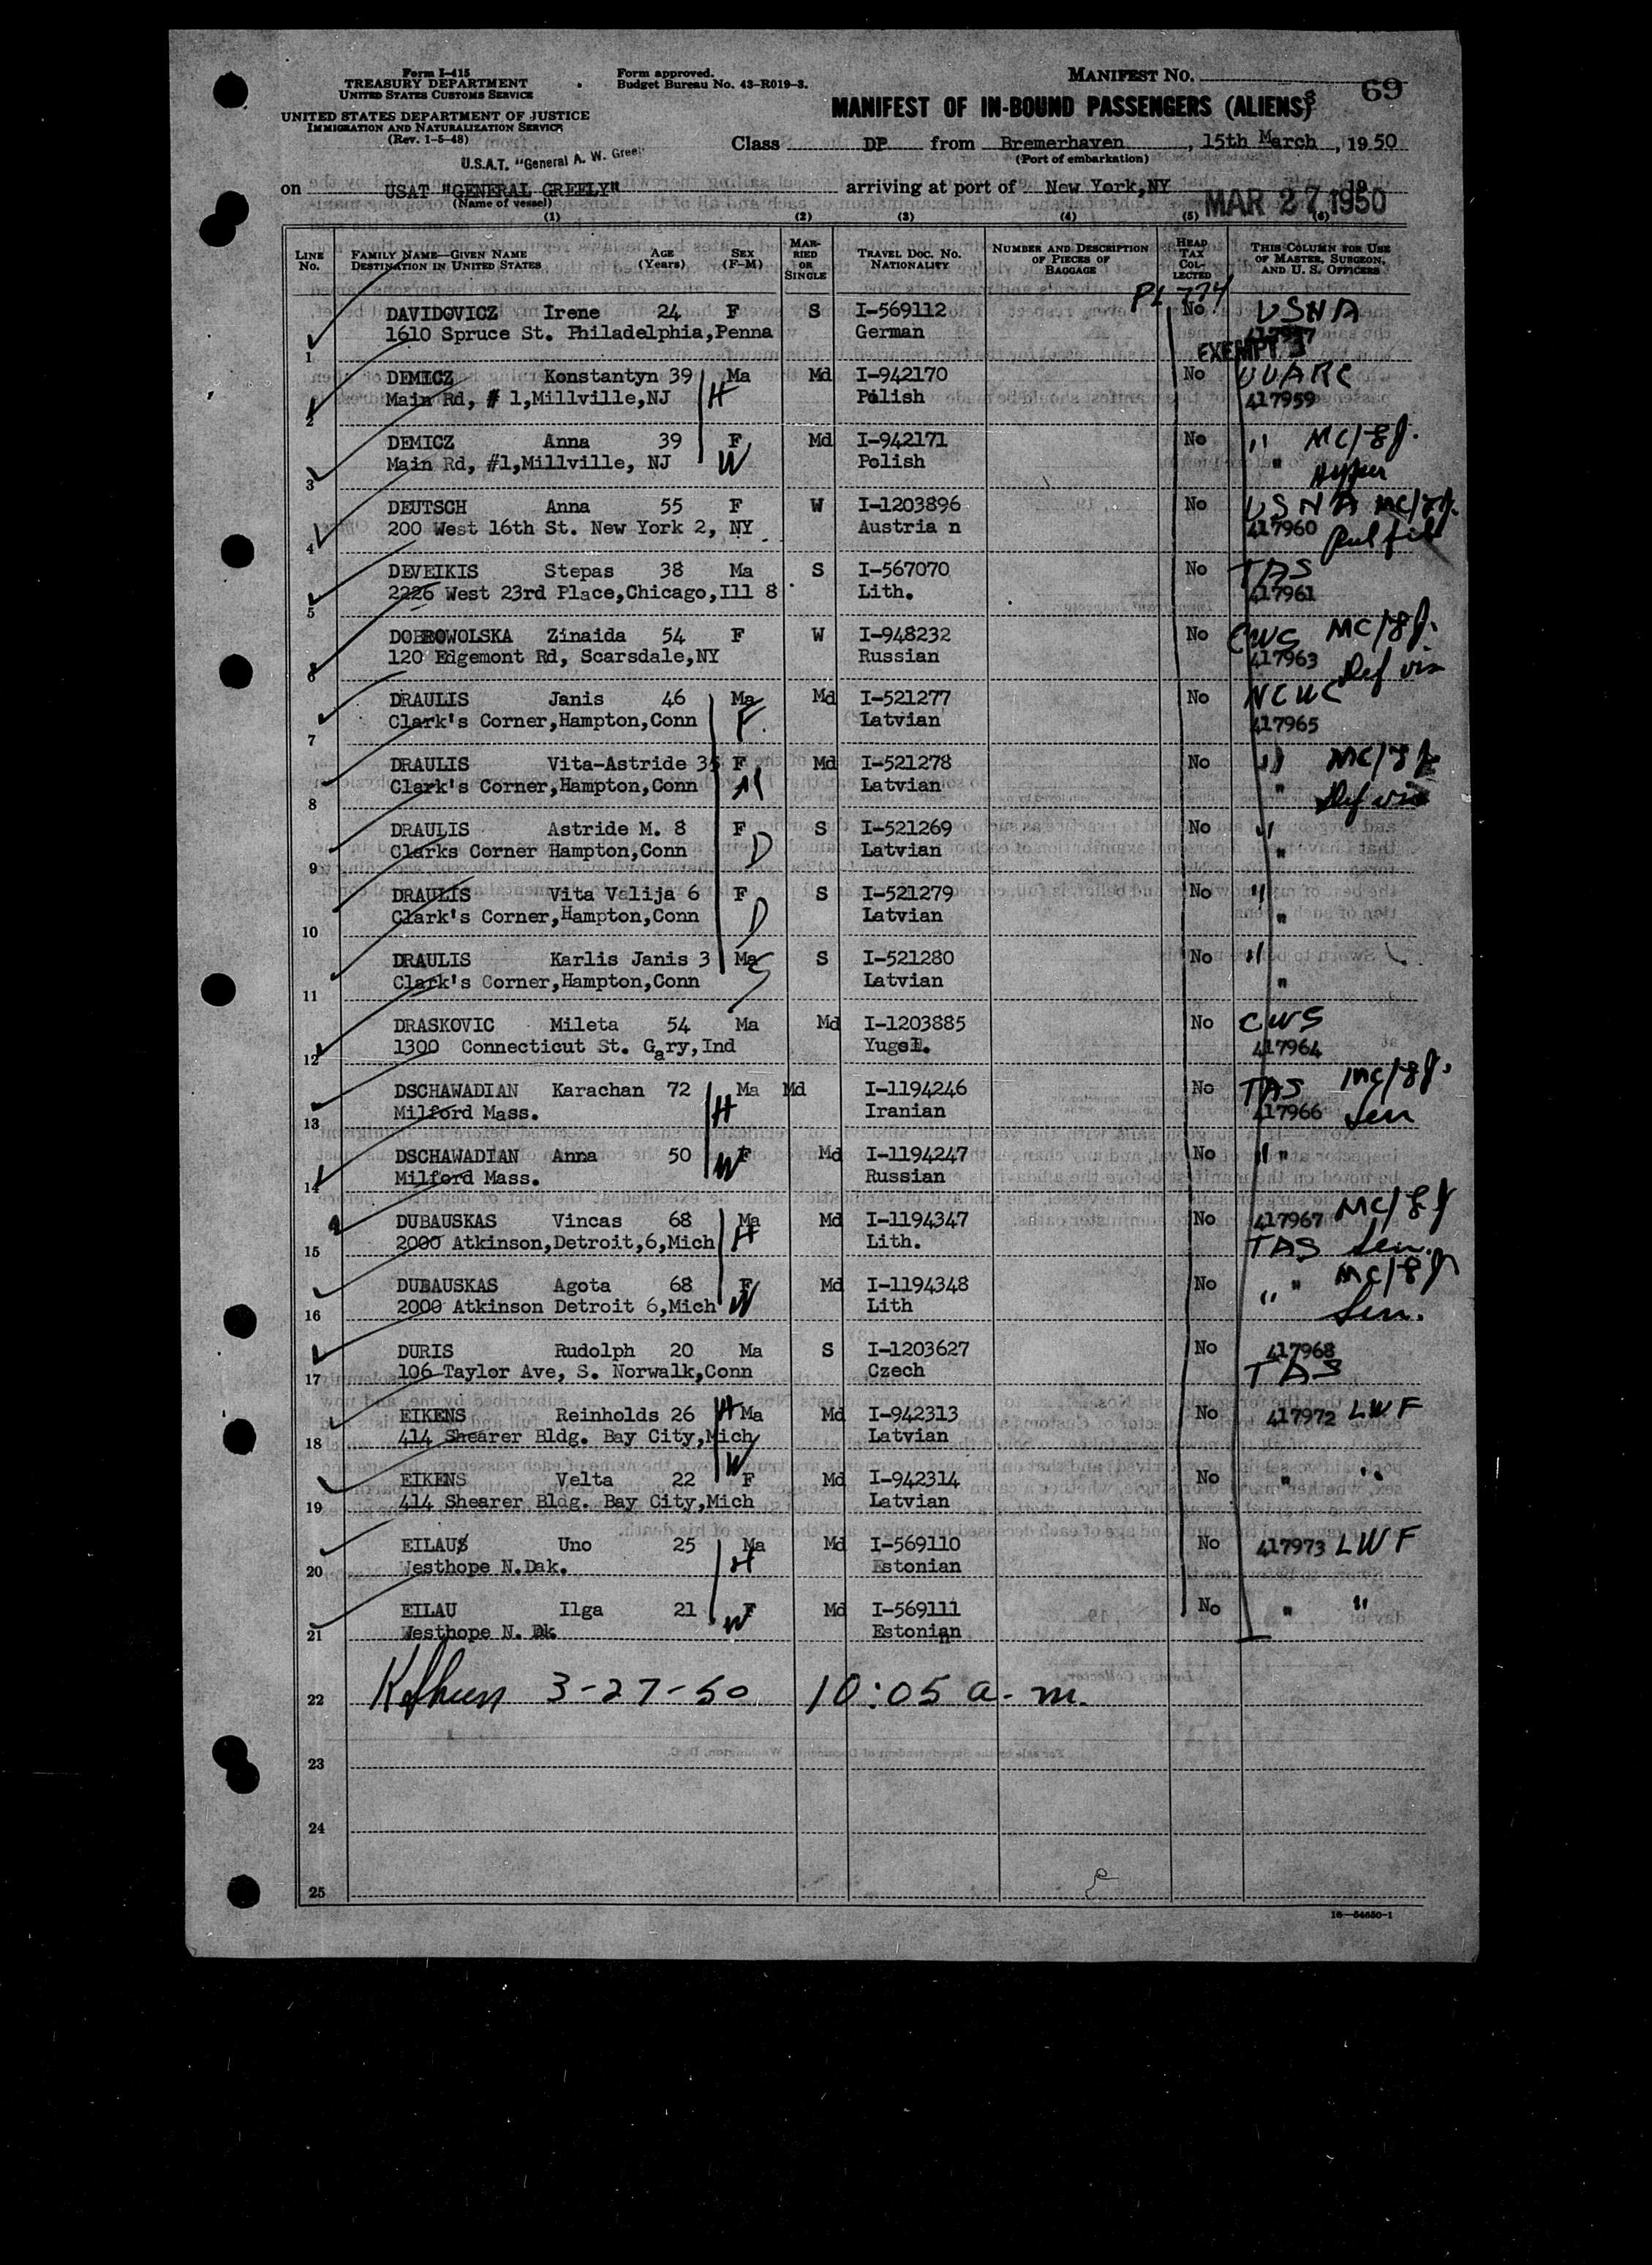 Form I-415
TREASURY DEPARTMENT
UNITED STATES CUSTOMS SERVICE
UNITED STATES DEPARTMENT OF JUSTICE
IMMIGRATION AND NATURALIZATION SERVICE
(Rev. 1-5-48)
Form approved.
Budget Bureau No. 43-R019-3.
MANIFEST NO. 69
MANIFEST OF IN-BOUND PASSENGERS (ALIENS)
Class DP from Bremerhaven, 15th March, 1950
(Port of embarkation)
U.S.A.T. "General A. W. Greely"
on USAT "GENERAL GREELY" arriving at port of New York,NY MAR 27 1950
(Name of vessel)
(1) (2) (3) (4) (5) (6)
LINE NO. FAMILY NAME—GIVEN NAME DESTINATION IN UNITED STATES AGE (Years) SEX (F-M) MARRIED OR SINGLE TRAVEL DOC. NO. NATIONALITY NUMBER AND DESCRIPTION OF PIECES OF BAGGAGE HEAD TAX COLLECTED THIS COLUMN FOR USE OF MASTER, SURGEON, AND U. S. OFFICERS
PL 774
DAVIDOVICZ Irene 24 F S I-569112 No USNA
1 1610 Spruce St. Philadelphia,Penna German
EXEMPT 3
DEMICZ Konstantyn 39 Ma H Md I-942170 No UUARC
2 Main Rd, # 1,Millville,NJ Polish 417959
DEMICZ Anna 39 F W Md I-942171 No " MC/8g.
3 Main Rd, #1,Millville, NJ Polish " Hyper
DEUTSCH Anna 55 F W I-1203896 No USNA MC/8g.
4 200 West 16th St. New York 2, NY Austria n 417960
DEVEIKIS Stepas 38 Ma S I-567070 No TAS
5 2226 West 23rd Place,Chicago,Ill 8 Lith. 417961
DOBROWOLSKA Zinaida 54 F W I-948232 No CWS MC/8g.
6 120 Edgemont Rd, Scarsdale,NY Russian 417963 Def vis
DRAULIS Janis 46 Ma F. Md I-521277 No NCWC
7 Clark's Corner,Hampton,Conn Latvian 417965
DRAULIS Vita-Astride 35 F M Md I-521278 No " MC/8g
8 Clark's Corner,Hampton,Conn Latvian " Def vis
DRAULIS Astride M. 8 F D S I-521269 No "
9 Clarks Corner Hampton,Conn Latvian "
DRAULIS Vita Velija 6 F D S I-521279 No "
10 Clark's Corner,Hampton,Conn Latvian "
DRAULIS Karlis Janis 3 Ma S S I-521280 No "
11 Clark's Corner,Hampton,Conn Latvian "
DRASKOVIC Mileta 54 Ma Md I-1203885 No CWS
12 1300 Connecticut St. Gary,Ind Yugosl. 417964
DSCHAWADIAN Karachan 72 H Ma Md I-1194246 No TAS MC/8g.
13 Milford Mass. Iranian 417966 Sen
DSCHAWADIAN Anna 50 W F Md I-1194247 No " "
14 Milford Mass. Russian
DUBAUSKAS Vincas 68 Ma H Md I-1194347 No 417967 MC/8g
15 2000 Atkinson,Detroit,6,Mich Lith. TAS Sen.
DUBAUSKAS Agota 68 F W Md I-1194348 No " " MC/8g
16 2000 Atkinson Detroit 6,Mich Lith Sen.
DURIS Rudolph 20 Ma S I-1203627 No 417968
17 106 Taylor Ave, S. Norwalk,Conn Czech TAS
EIKENS Reinholds 26 H Ma Md I-942313 No 417972 LWF
18 414 Shearer Bldg. Bay City,Mich Latvian
EIKENS Velta 22 W F Md I-942314 No " "
19 414 Shearer Bldg. Bay City,Mich Latvian
EILAU Uno 25 Ma H Md I-569110 No 417973 LWF
20 Westhope N.Dak. Estonian
EILAU Ilga 21 F W Md I-569111 No " "
21 Westhope N. Dk Estonian
22 3-27-50 10:05 a.m.
23
24
25
16—54650-1